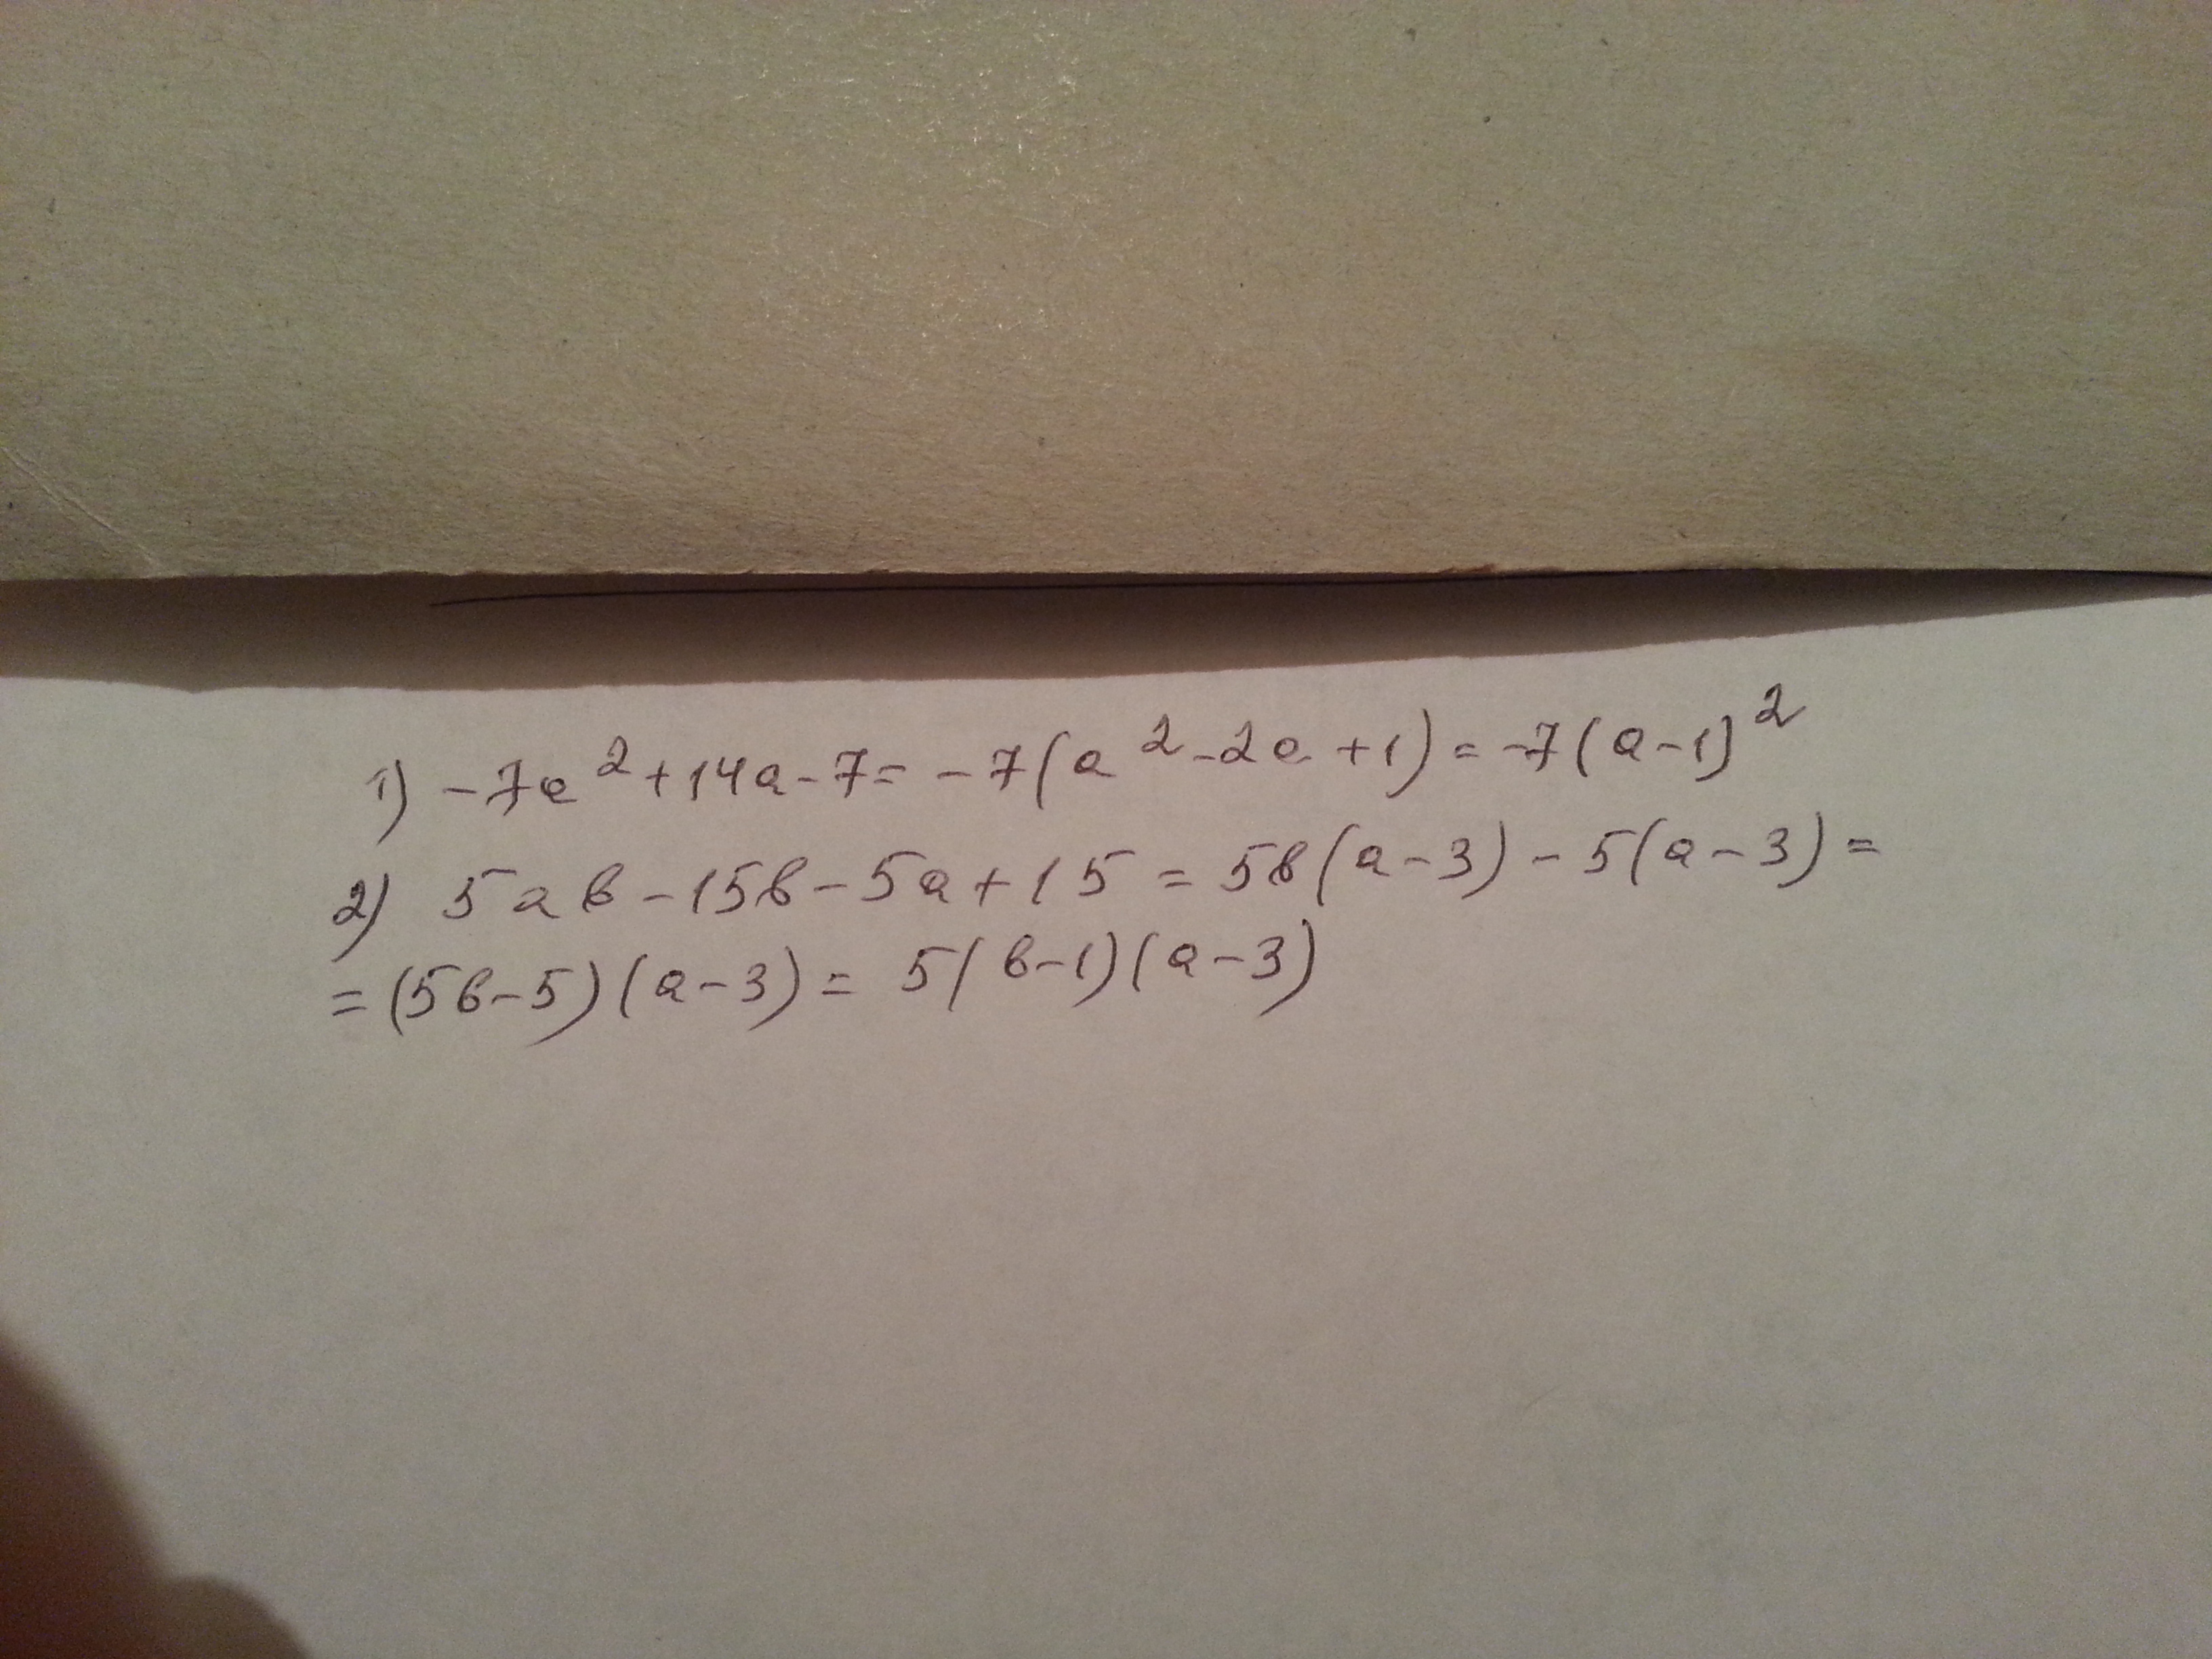 1) -7a² + 14a - 7 = -7(a² - 2a + 1) = -7(a - 1)²
2) 5ab - 15b - 5a + 15 = 5b(a - 3) - 5(a - 3) =
= (5b - 5)(a - 3) = 5(b - 1)(a - 3)